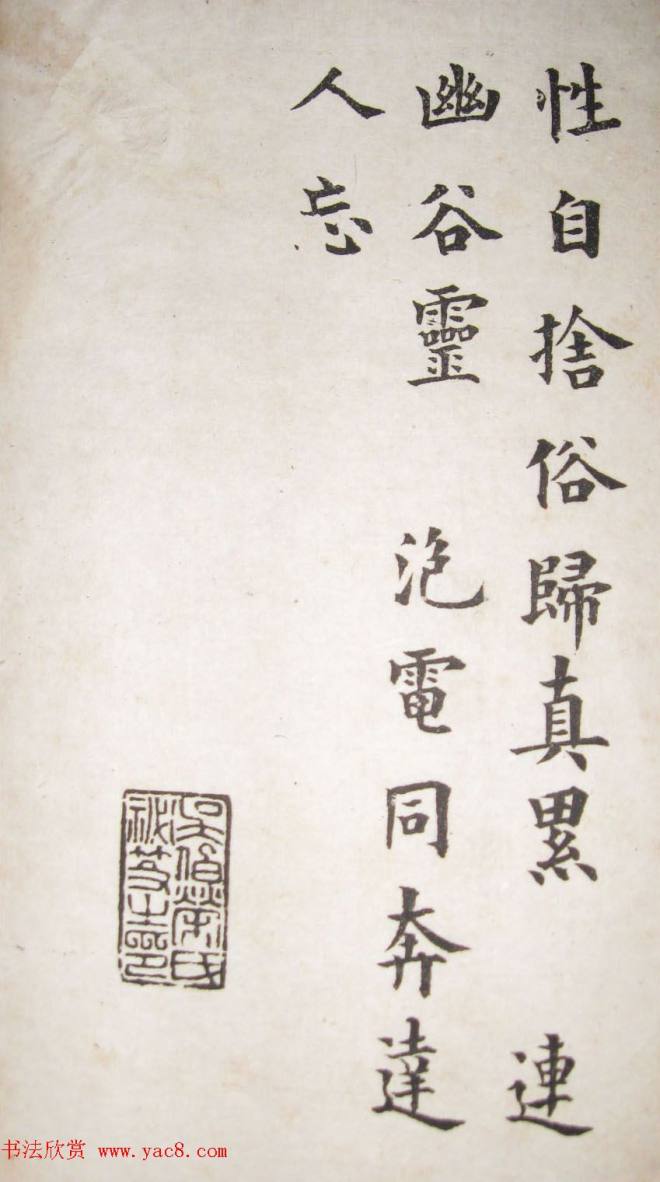 性自捨俗歸真累 連
幽谷靈 泡電同奔達
人忘
书法欣赏 www.yac8.com